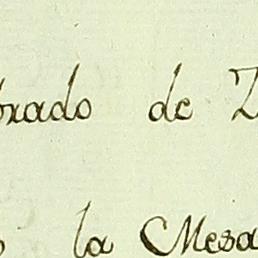 brado de
la Mesa